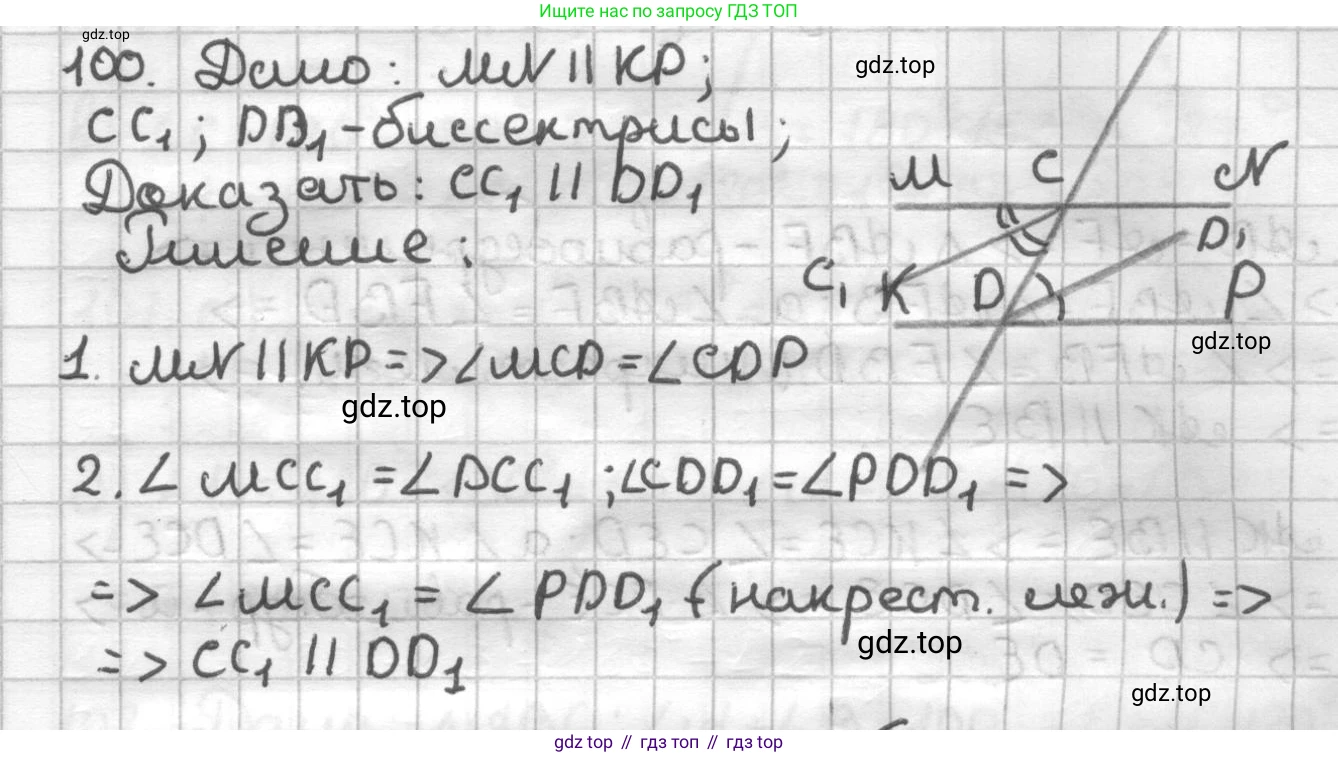 Ищите нас по запросу ГДЗ ТОП
gdz.top
100. Дано: MN || KP;
gdz.top
CC₁; DB₁ - биссектрисы;
Доказать: CC₁ || DD₁
Решение:
M C N
D₁
C₁ K D P
gdz.top
1. MN || KP => ∠MCD = ∠CDP
gdz.top
2. ∠MCC₁ = ∠DCC₁; ∠CDD₁ = ∠PDD₁ =>
=> ∠MCC₁ = ∠PDD₁ (накрест. леж.) =>
gdz.top
=> CC₁ || DD₁
gdz.top
gdz top // гдз топ // гдз top